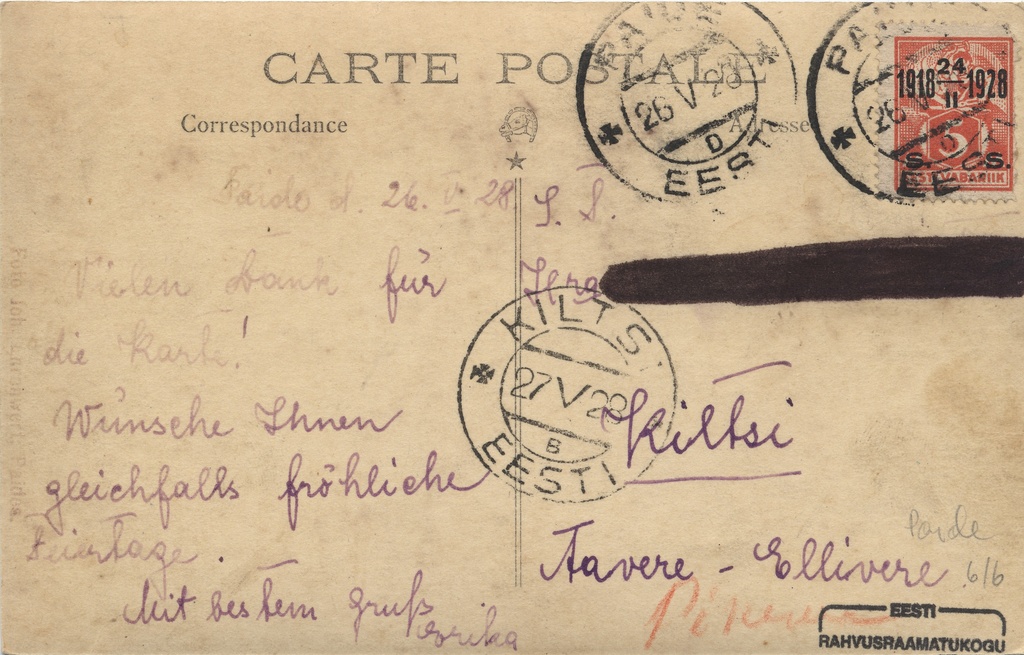 CARTE POSTALE
Correspondance
Adresse
PAIDE
26 V 28
D
EESTI
PAIDE
26 V
D
EE
1918 24 II 1928
5
S. CS.
EESTI VABARIIK
Paide d. 26. V 28
Vielen Dank für
die Karte!
Wünsche Ihnen
gleichfalls fröhliche
Feiertage.
Mit bestem Gruß
Erika
S. T.
KILTSI
27 V 28
B
EESTI
Kiltsi
Aavere - Ellivere
Paide
6/6
EESTI
RAHVUSRAAMATUKOGU